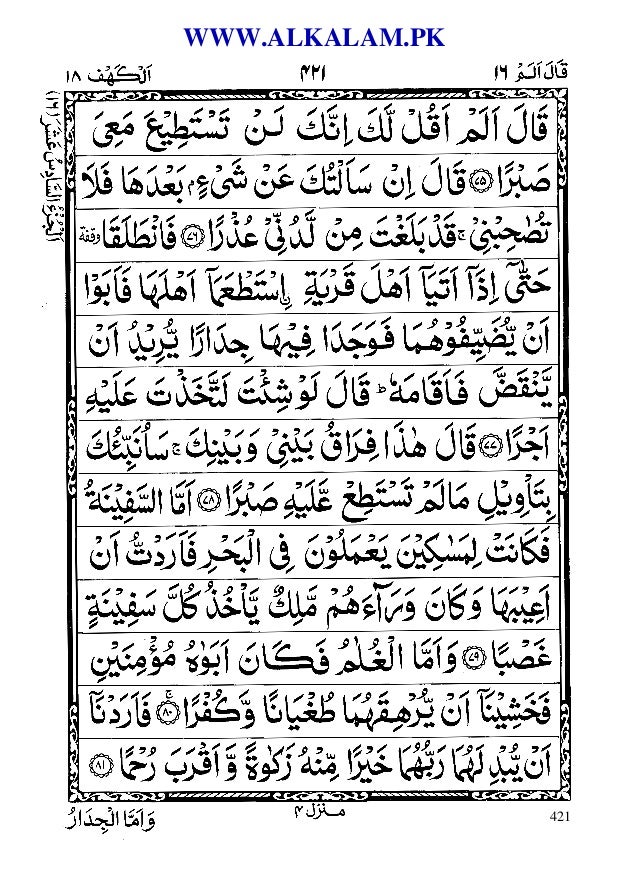 WWW.ALKALAM.PK
قَالَ اَلَمْ ١٦
۴۲۱
اَلْكَهْف ١٨
اَلْجُزْءُ السَّادِسُ عَشَرَ (١٦)
قَالَ اَلَمْ اَقُلْ لَّكَ اِنَّكَ لَنْ تَسْتَطِيْعَ مَعِىَ
صَبْرًا ۝۷۵ قَالَ اِنْ سَاَلْتُكَ عَنْ شَىْءٍۭ بَعْدَهَا فَلَا
تُصٰحِبْنِىْ ۚ قَدْ بَلَغْتَ مِنْ لَّدُنِّىْ عُذْرًا ۝۷۶ فَانْطَلَقَا وقفة
حَتّٰٓى اِذَاۤ اَتَيَاۤ اَهْلَ قَرْيَةِ ِۨاسْتَطْعَمَاۤ اَهْلَهَا فَاَبَوْا
اَنْ يُّضَيِّفُوْهُمَا فَوَجَدَا فِيْهَا جِدَارًا يُّرِيْدُ اَنْ
يَّنْقَضَّ فَاَقَامَهٗ ؕ قَالَ لَوْ شِئْتَ لَتَّخَذْتَ عَلَيْهِ
اَجْرًا ۝۷۷ قَالَ هٰذَا فِرَاقُ بَيْنِىْ وَبَيْنِكَ ۚ سَاُنَبِّئُكَ
بِتَاْوِيْلِ مَا لَمْ تَسْتَطِعْ عَّلَيْهِ صَبْرًا ۝۷۸ اَمَّا السَّفِيْنَةُ
فَكَانَتْ لِمَسٰكِيْنَ يَعْمَلُوْنَ فِى الْبَحْرِ فَاَرَدْتُّ اَنْ
اَعِيْبَهَا وَكَانَ وَرَآءَهُمْ مَّلِكٌ يَّاْخُذُ كُلَّ سَفِيْنَةٍ
غَصْبًا ۝۷۹ وَاَمَّا الْغُلٰمُ فَكَانَ اَبَوٰهُ مُؤْمِنَيْنِ
فَخَشِيْنَاۤ اَنْ يُّرْهِقَهُمَا طُغْيَانًا وَّكُفْرًا ۚ ۝۸۰ فَاَرَدْنَاۤ
اَنْ يُّبْدِلَهُمَا رَبُّهُمَا خَيْرًا مِّنْهُ زَكٰوةً وَّاَقْرَبَ رُحْمًا ۝۸۱
منزل ۴
وَاَمَّا الْجِدَارُ
421